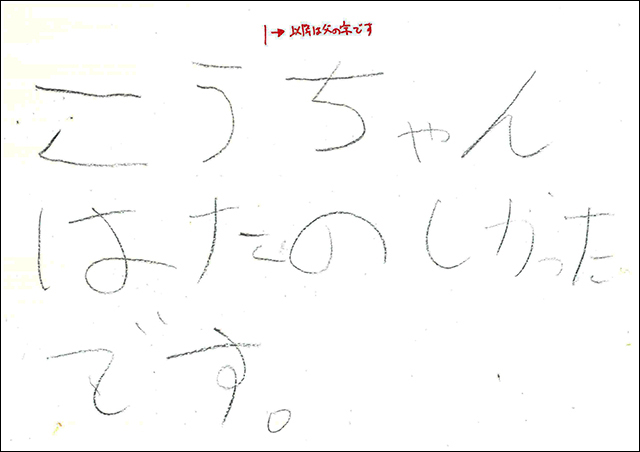 →以降は父の字です
こうちゃん
はたのしかった
です。